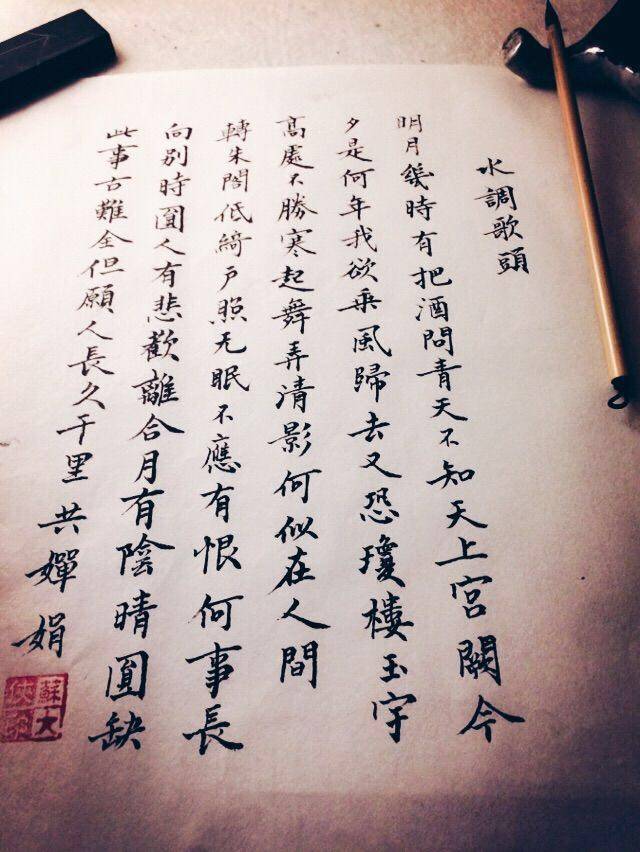 水調歌頭
明月幾時有把酒問青天不知天上宮闕今
夕是何年我欲乘風歸去又恐瓊樓玉宇
高處不勝寒起舞弄清影何似在人間
轉朱閣低綺户照无眠不應有恨何事長
向别時圓人有悲歡離合月有陰晴圓缺
此事古難全但願人長久千里共嬋娟